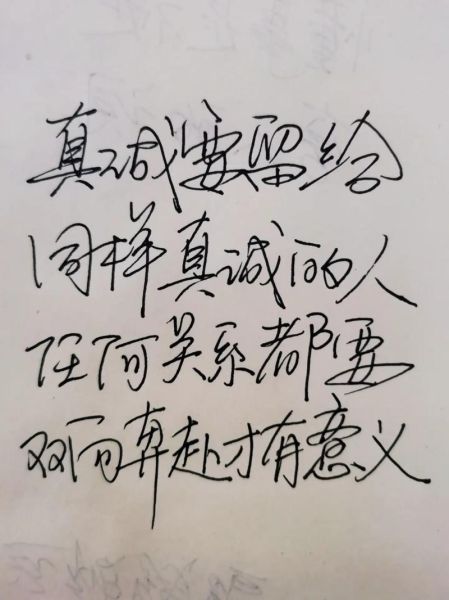 真诚要留给
同样真诚的人
任何关系都要
双向奔赴才有意义